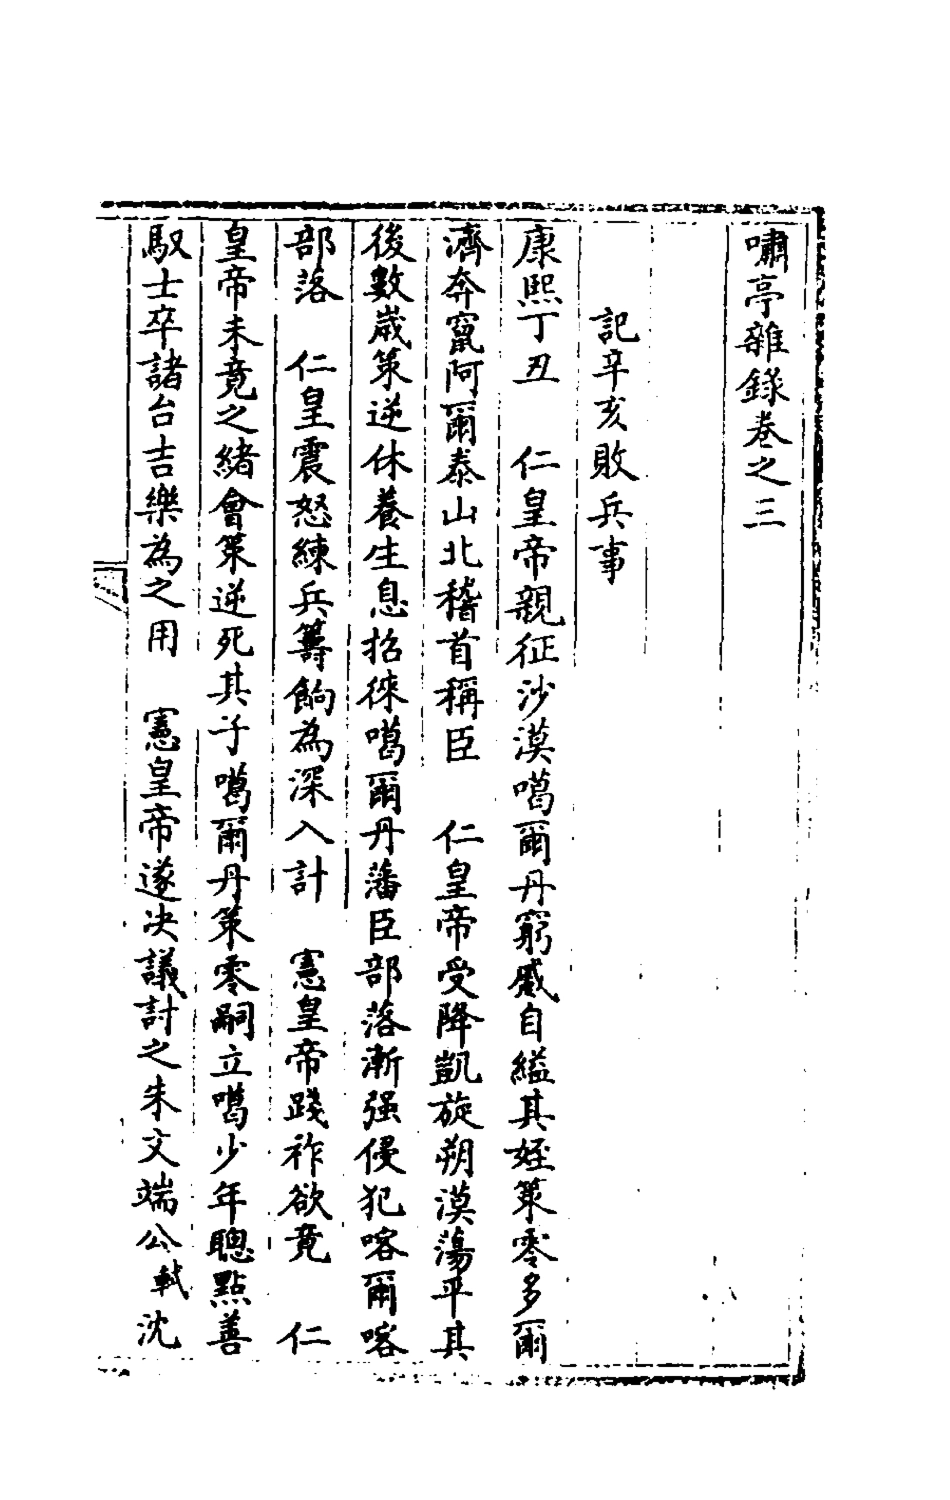 嘯亭雜錄卷之三
記辛亥敗兵事
康熙丁丑　仁皇帝親征沙漠噶爾丹窮蹙自縊其姪策零多爾
濟奔竄阿爾泰山北稽首稱臣　仁皇帝受降凱旋朔漠蕩平其
後數歲策逆休養生息招徠噶爾丹藩臣部落漸强侵犯喀爾喀
部落　仁皇震怒練兵籌餉為深入計　憲皇帝踐祚欲竟　仁
皇帝未竟之緒會策逆死其子噶爾丹策零嗣立噶少年聰黠善
馭士卒諸台吉樂為之用　憲皇帝遂决議討之朱文端公軾沈